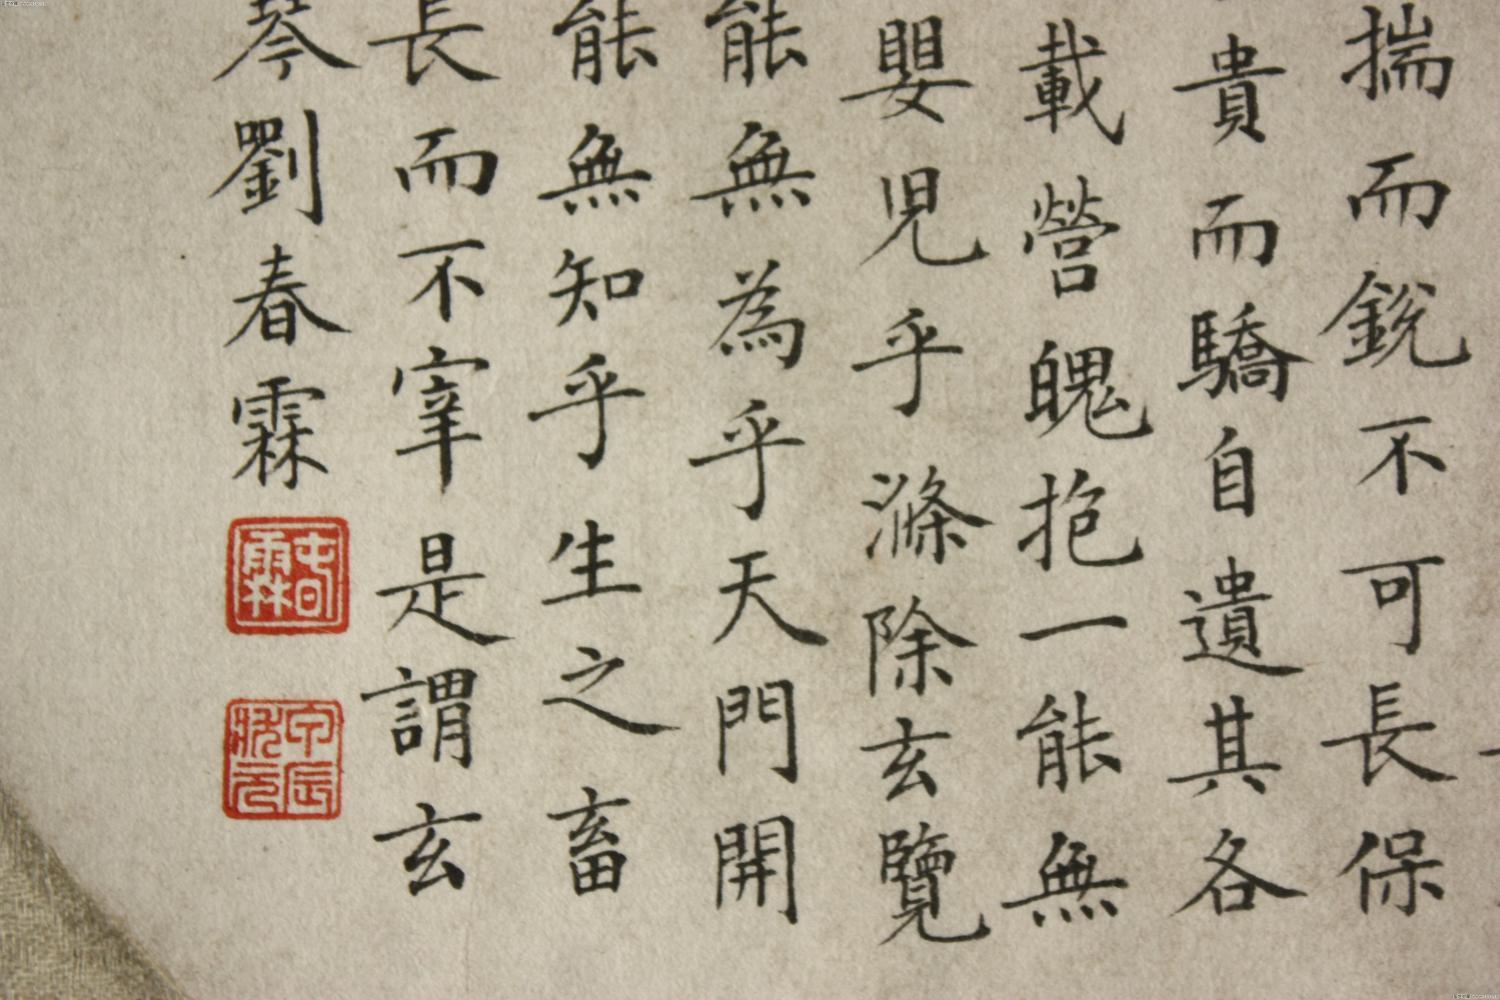 揣而銳不可長保
貴而驕自遺其各
載營魄抱一能無
嬰兒乎滌除玄覽
能無為乎天門開
能無知乎生之畜
長而不宰是謂玄
琴劉春霖
春霖
甲辰狀元